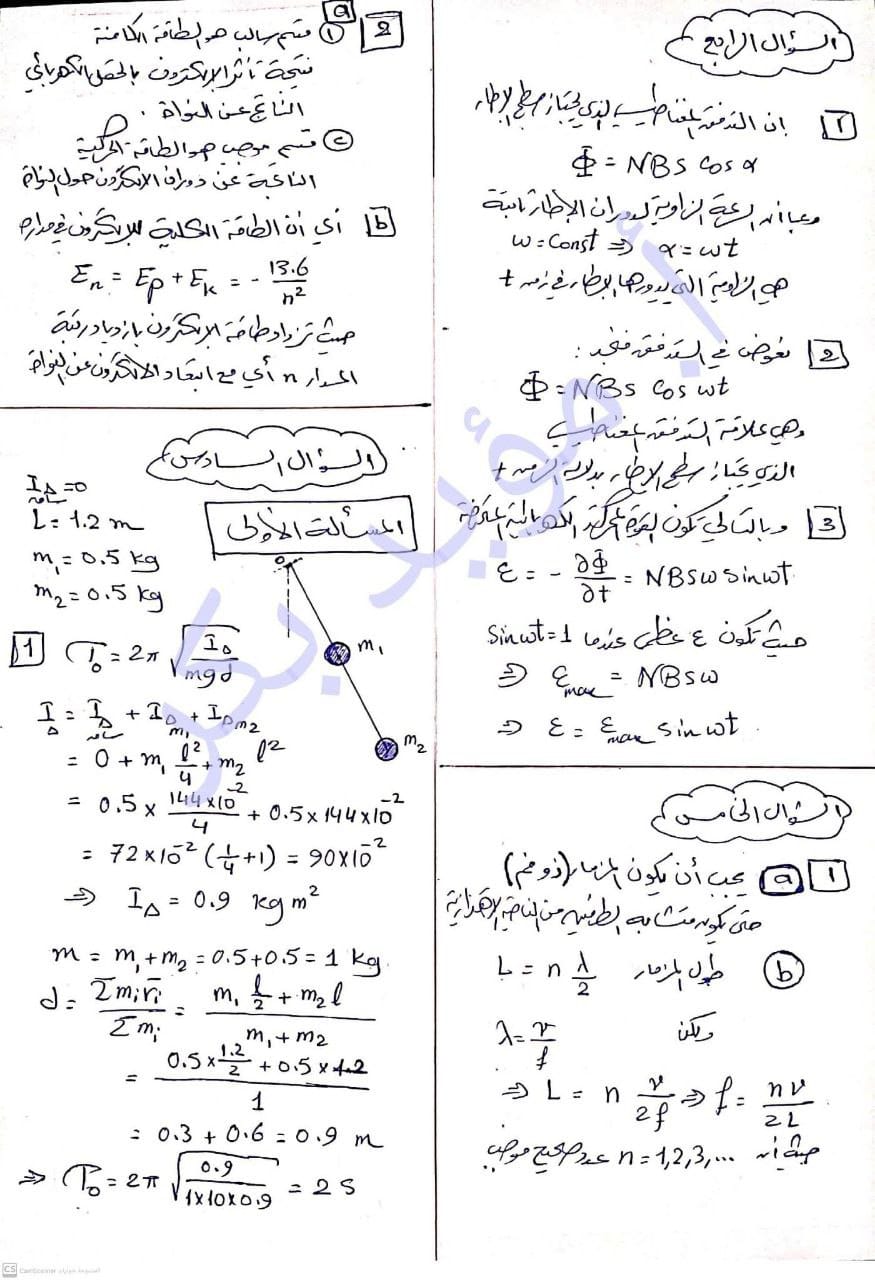 السؤال الرابع
1 ان التدفق المغناطيسي الذي يجتاز سطح الإطار
Φ = NBs cos α
وبما أن السرعة الزاوية لدوران الإطار ثابتة
ω = Const ⇒ α = ωt
هي الزاوية التي يدورها الإطار في زمن t
2 نعوض في التدفق فنجد :
Φ = NBs cos ωt
وهي علاقة التدفق المغناطيسي
الذي يجتاز سطح الإطار بدلالة الزمن t
3 وبالتالي تكون القوة المحركة الكهربائية المتحرضة
ε = - ∂Φ/∂t = NBsω sin ωt
حيث تكون ε عظمى عندما sin ωt = 1
⇒ ε max = NBsω
⇒ ε = ε max sin ωt .
السؤال الخامس
1 a يجب أن يكون المزمار (ذو فم)
حتى يكون متشابه الطرفين من الناحية الاهتزازية
b طول المزمار L = n λ/2
ولكن λ = v/f
⇒ L = n v/2f ⇒ f = nv/2L
حيث أن n = 1,2,3,... عدد صحيح موجب
2 a
① قسم سالب هو الطاقة الكامنة
نتيجة تأثر الإلكترون بالحقل الكهربائي
الناتج عن النواة .
② قسم موجب هو الطاقة الحركية
الناتجة عن دوران الإلكترون حول النواة
b أي أن الطاقة الكلية للإلكترون في مداره
En = Ep + Ek = - 13.6/n²
حيث تزداد طاقة الإلكترون بازدياد رتبة
المدار n أي مع ابتعاد الالكترون عن النواة
السؤال السادس
المسألة الأولى
I Δ ساق = 0
L = 1.2 m
m₁ = 0.5 kg
m₂ = 0.5 kg
o
m₁
m₂
1 T₀ = 2π √(I Δ/mgd)
I Δ = I Δ ساق + I Δ m₁ + I Δ m₂
= 0 + m₁ l²/4 + m₂ l²
= 0.5 × 144×10⁻²/4 + 0.5×144×10⁻²
= 72×10⁻² (1/4+1) = 90×10⁻²
⇒ I Δ = 0.9 kg m²
m = m₁+m₂ = 0.5+0.5 = 1 kg
d = Σmᵢr̄ᵢ/Σmᵢ = (m₁ l/2 + m₂ l)/(m₁+m₂)
= (0.5×1.2/2 + 0.5×1.2)/1
= 0.3 + 0.6 = 0.9 m
⇒ T₀ = 2π √(0.9/1×10×0.9) = 2 s
أ. مؤيد بكر
CS CamScanner الممسوحة ضوئيا بـ